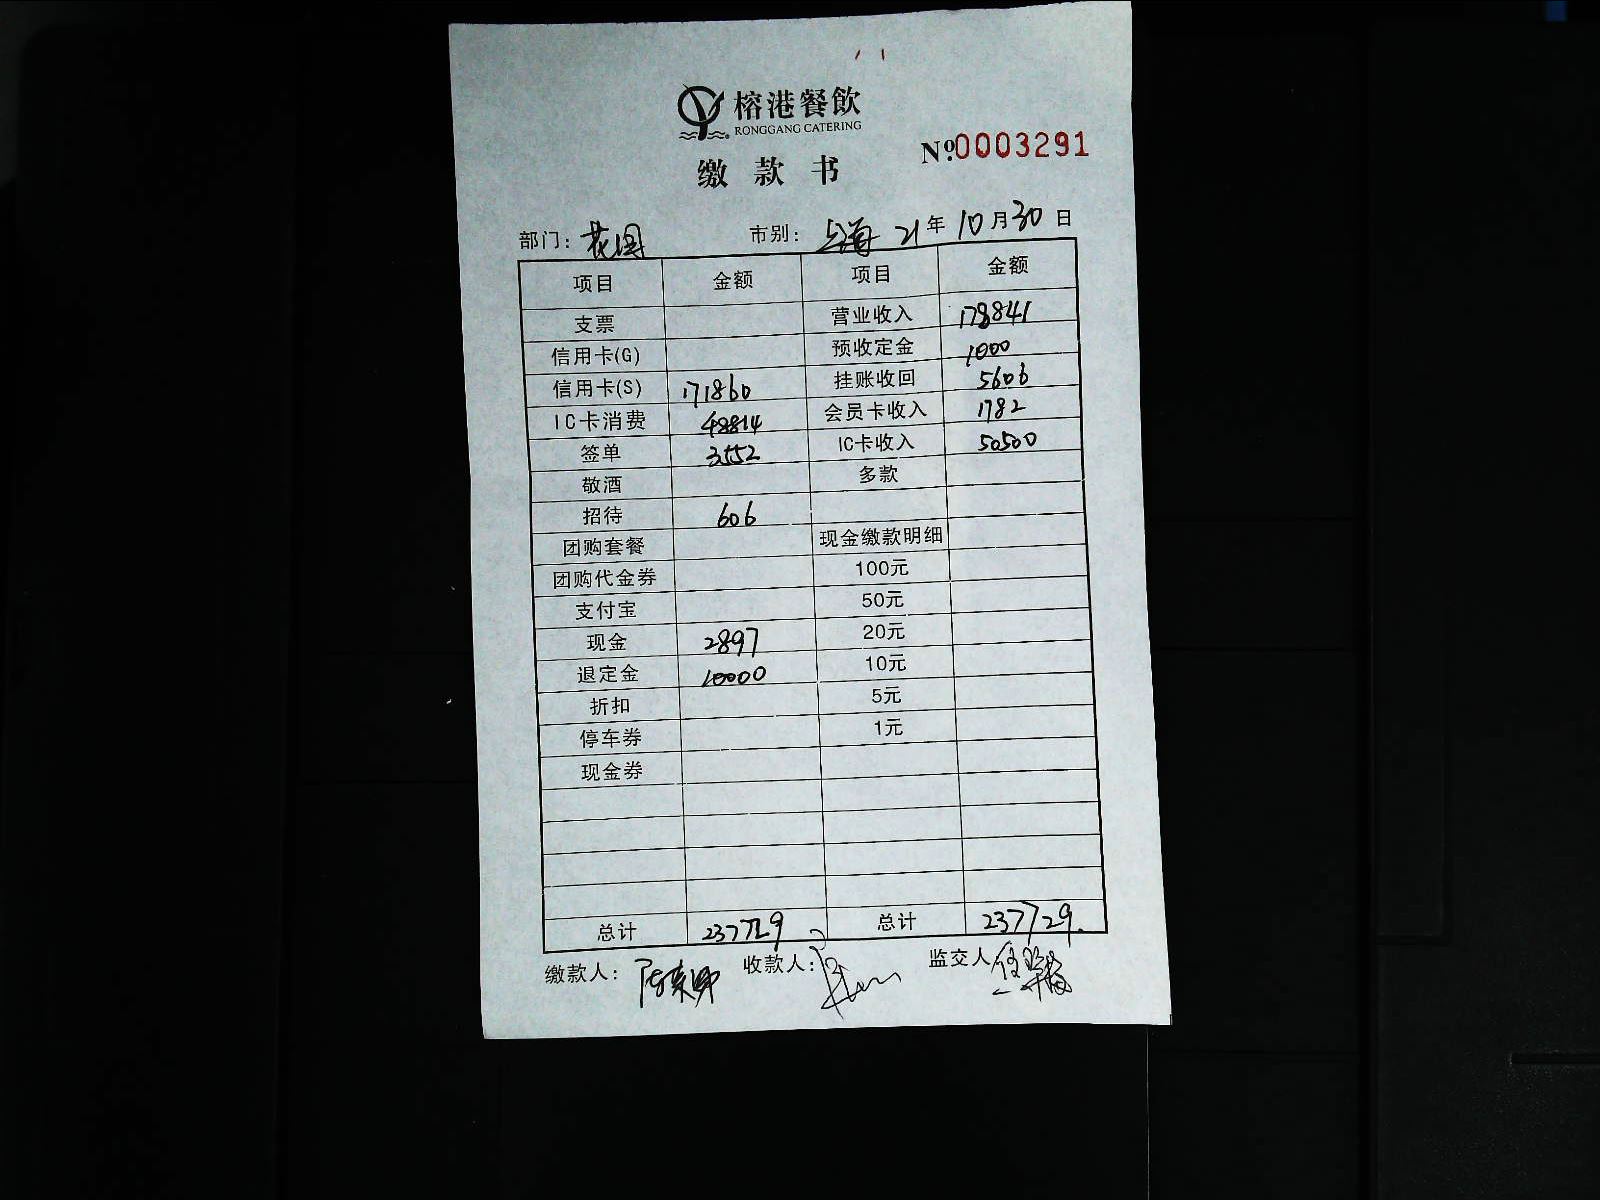 榕港餐飲
RONGGANG CATERING
缴款书
№0003291
部门：花园 市别：上海 21年10月30日
项目 金额 项目 金额
支票 营业收入 178841
信用卡(G) 预收定金 1000
信用卡(S) 171860 挂账收回 5606
IC卡消费 48814 会员卡收入 1782
签单 3552 IC卡收入 50500
敬酒 多款
招待 606
团购套餐 现金缴款明细
团购代金券 100元
支付宝 50元
现金 2897 20元
退定金 10000 10元
折扣 5元
停车券 1元
现金券
总计 237729 总计 237729.
缴款人： 收款人： 监交人